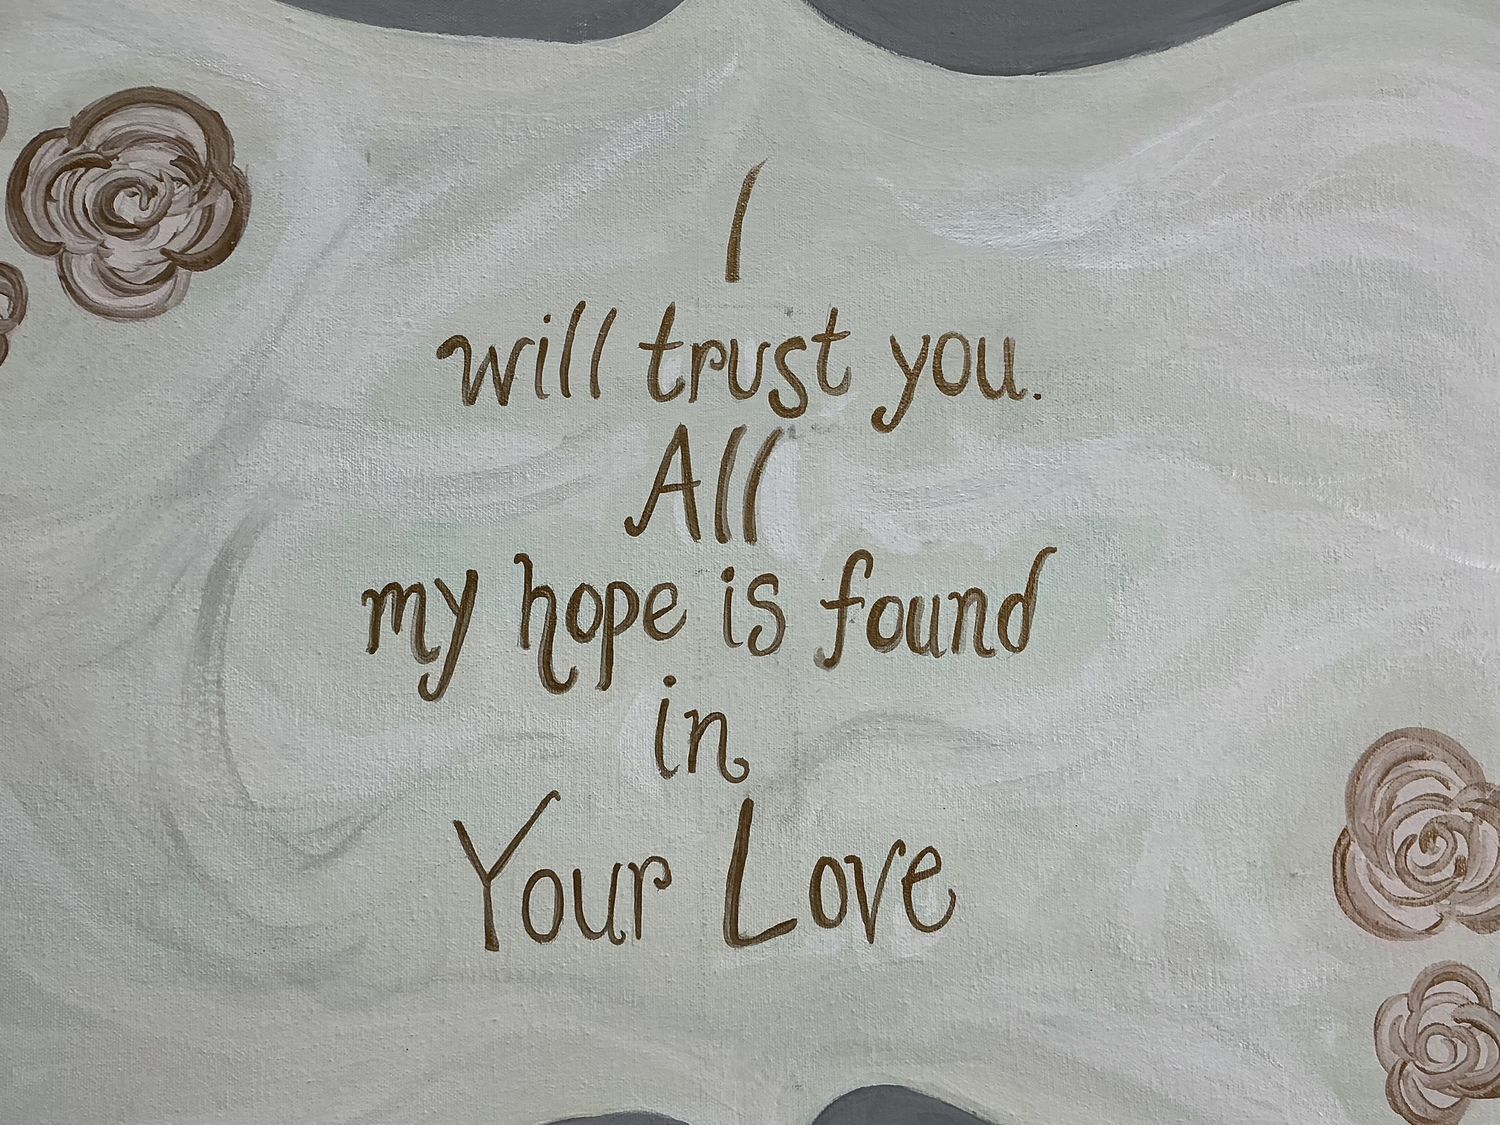 I
will trust you.
All
my hope is found
in
Your Love